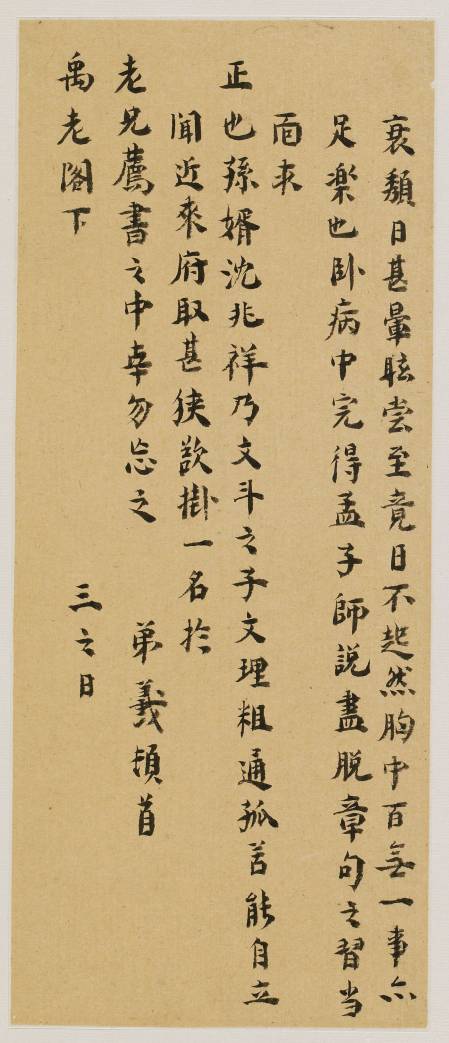 衰頽日甚暈眩尝至竟日不起然胸中百無一事亦
足楽也卧病中完得孟子師説盡脱章句之習当
面求
正也孫婿沈兆祥乃文斗之子文理粗通孤苦能自立
聞近來府取甚狭欲掛一名扵
老兄薦書之中幸勿忘之 弟羲頓首
禹老閣下 三之日